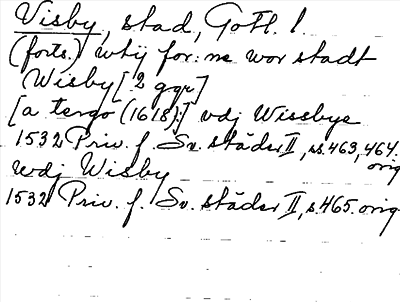 Visby, stad, Gotl. l.
(forts.) wtÿ for:ne wor stadt
Wisby [2 ggr]
[a tergo (1618):] vdj Wissbye
1532 Priv. f. Sv. städer II, ss. 463, 464.
orig
wdj Wisby
1532 Priv. f. Sv. städer II, s. 465. orig